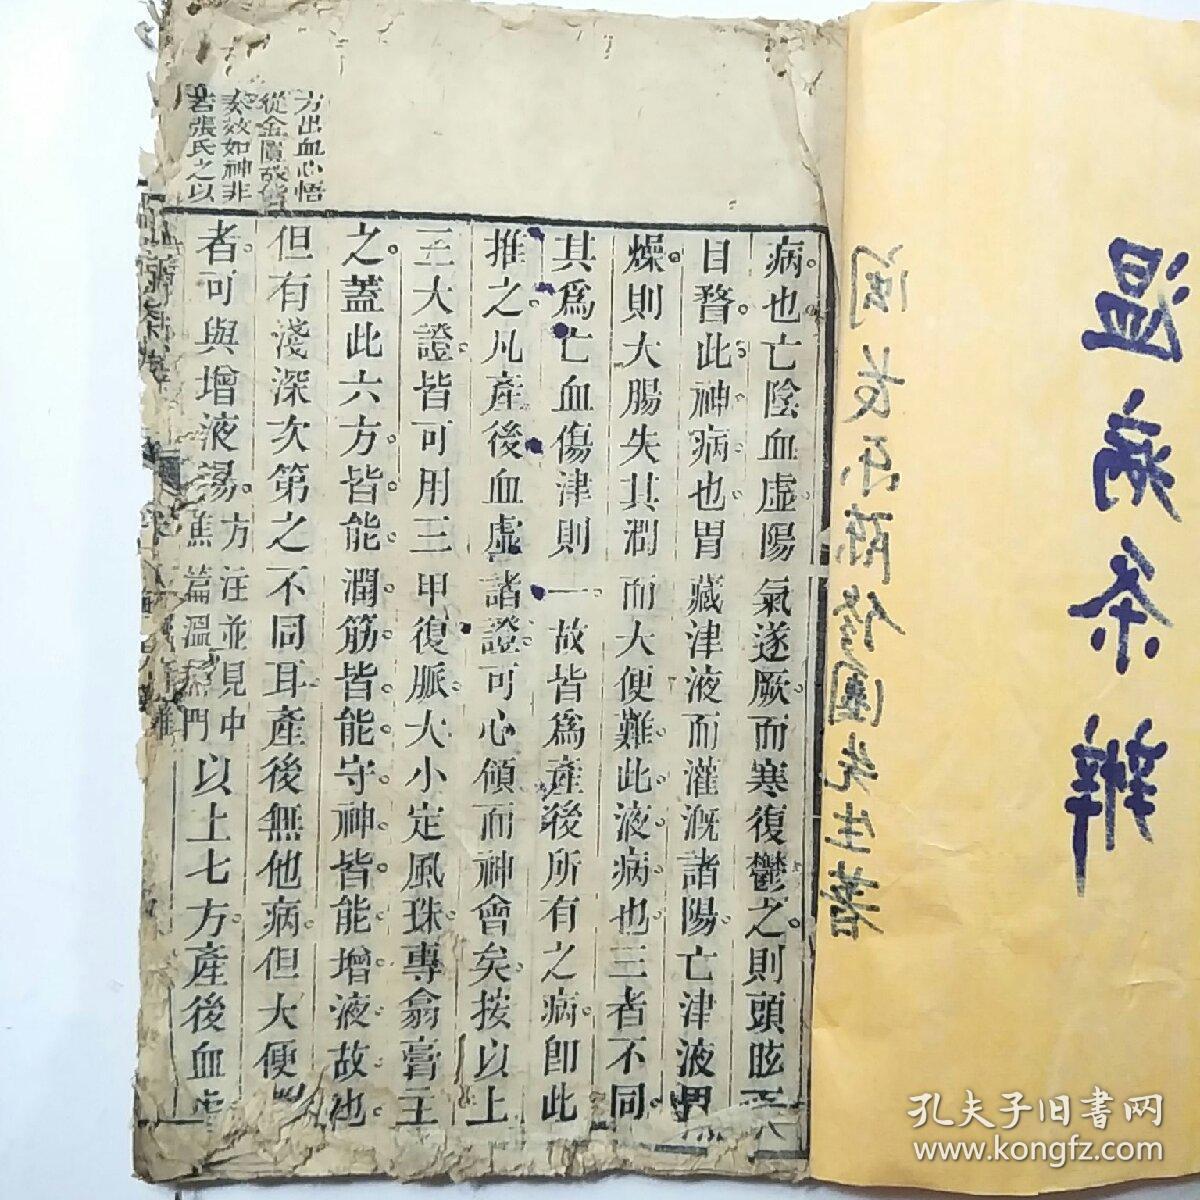 温病条辨
病也亡陰血虛陽氣遂厥而寒復鬱之則頭眩而
目瞀此神病也胃藏津液而灌溉諸陽亡津液胃
燥則大腸失其潤而大便難此液病也三者不同
其爲亡血傷津則一故皆爲產後所有之病卽此
推之凡產後血虛諸證可心領而神會矣按以上
三大證皆可用三甲復脈大小定風珠專翕膏主
之蓋此六方皆能潤筋皆能守神皆能增液故也
但有淺深次第之不同耳產後無他病但大便
者可與增液湯方注並見中
焦篇溫熱門
以上七方產後血虛
方出血心悟
從金匱
效如神非
若張氏之以
孔夫子旧書网
www.kongfz.com